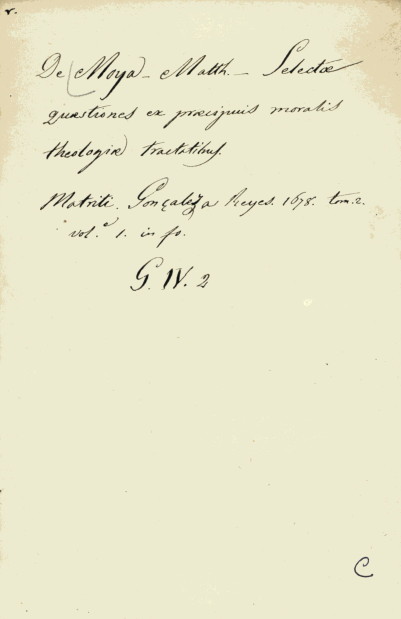 r.
De (Moya) - Matth. - Selectæ
quæstiones ex præcipuis moralis
theologiæ tractatibus.
Matriti. Gonçalez a Reyes. 1678. tom. 2.
vol.e 1. in fo.
G. IV. 2
C